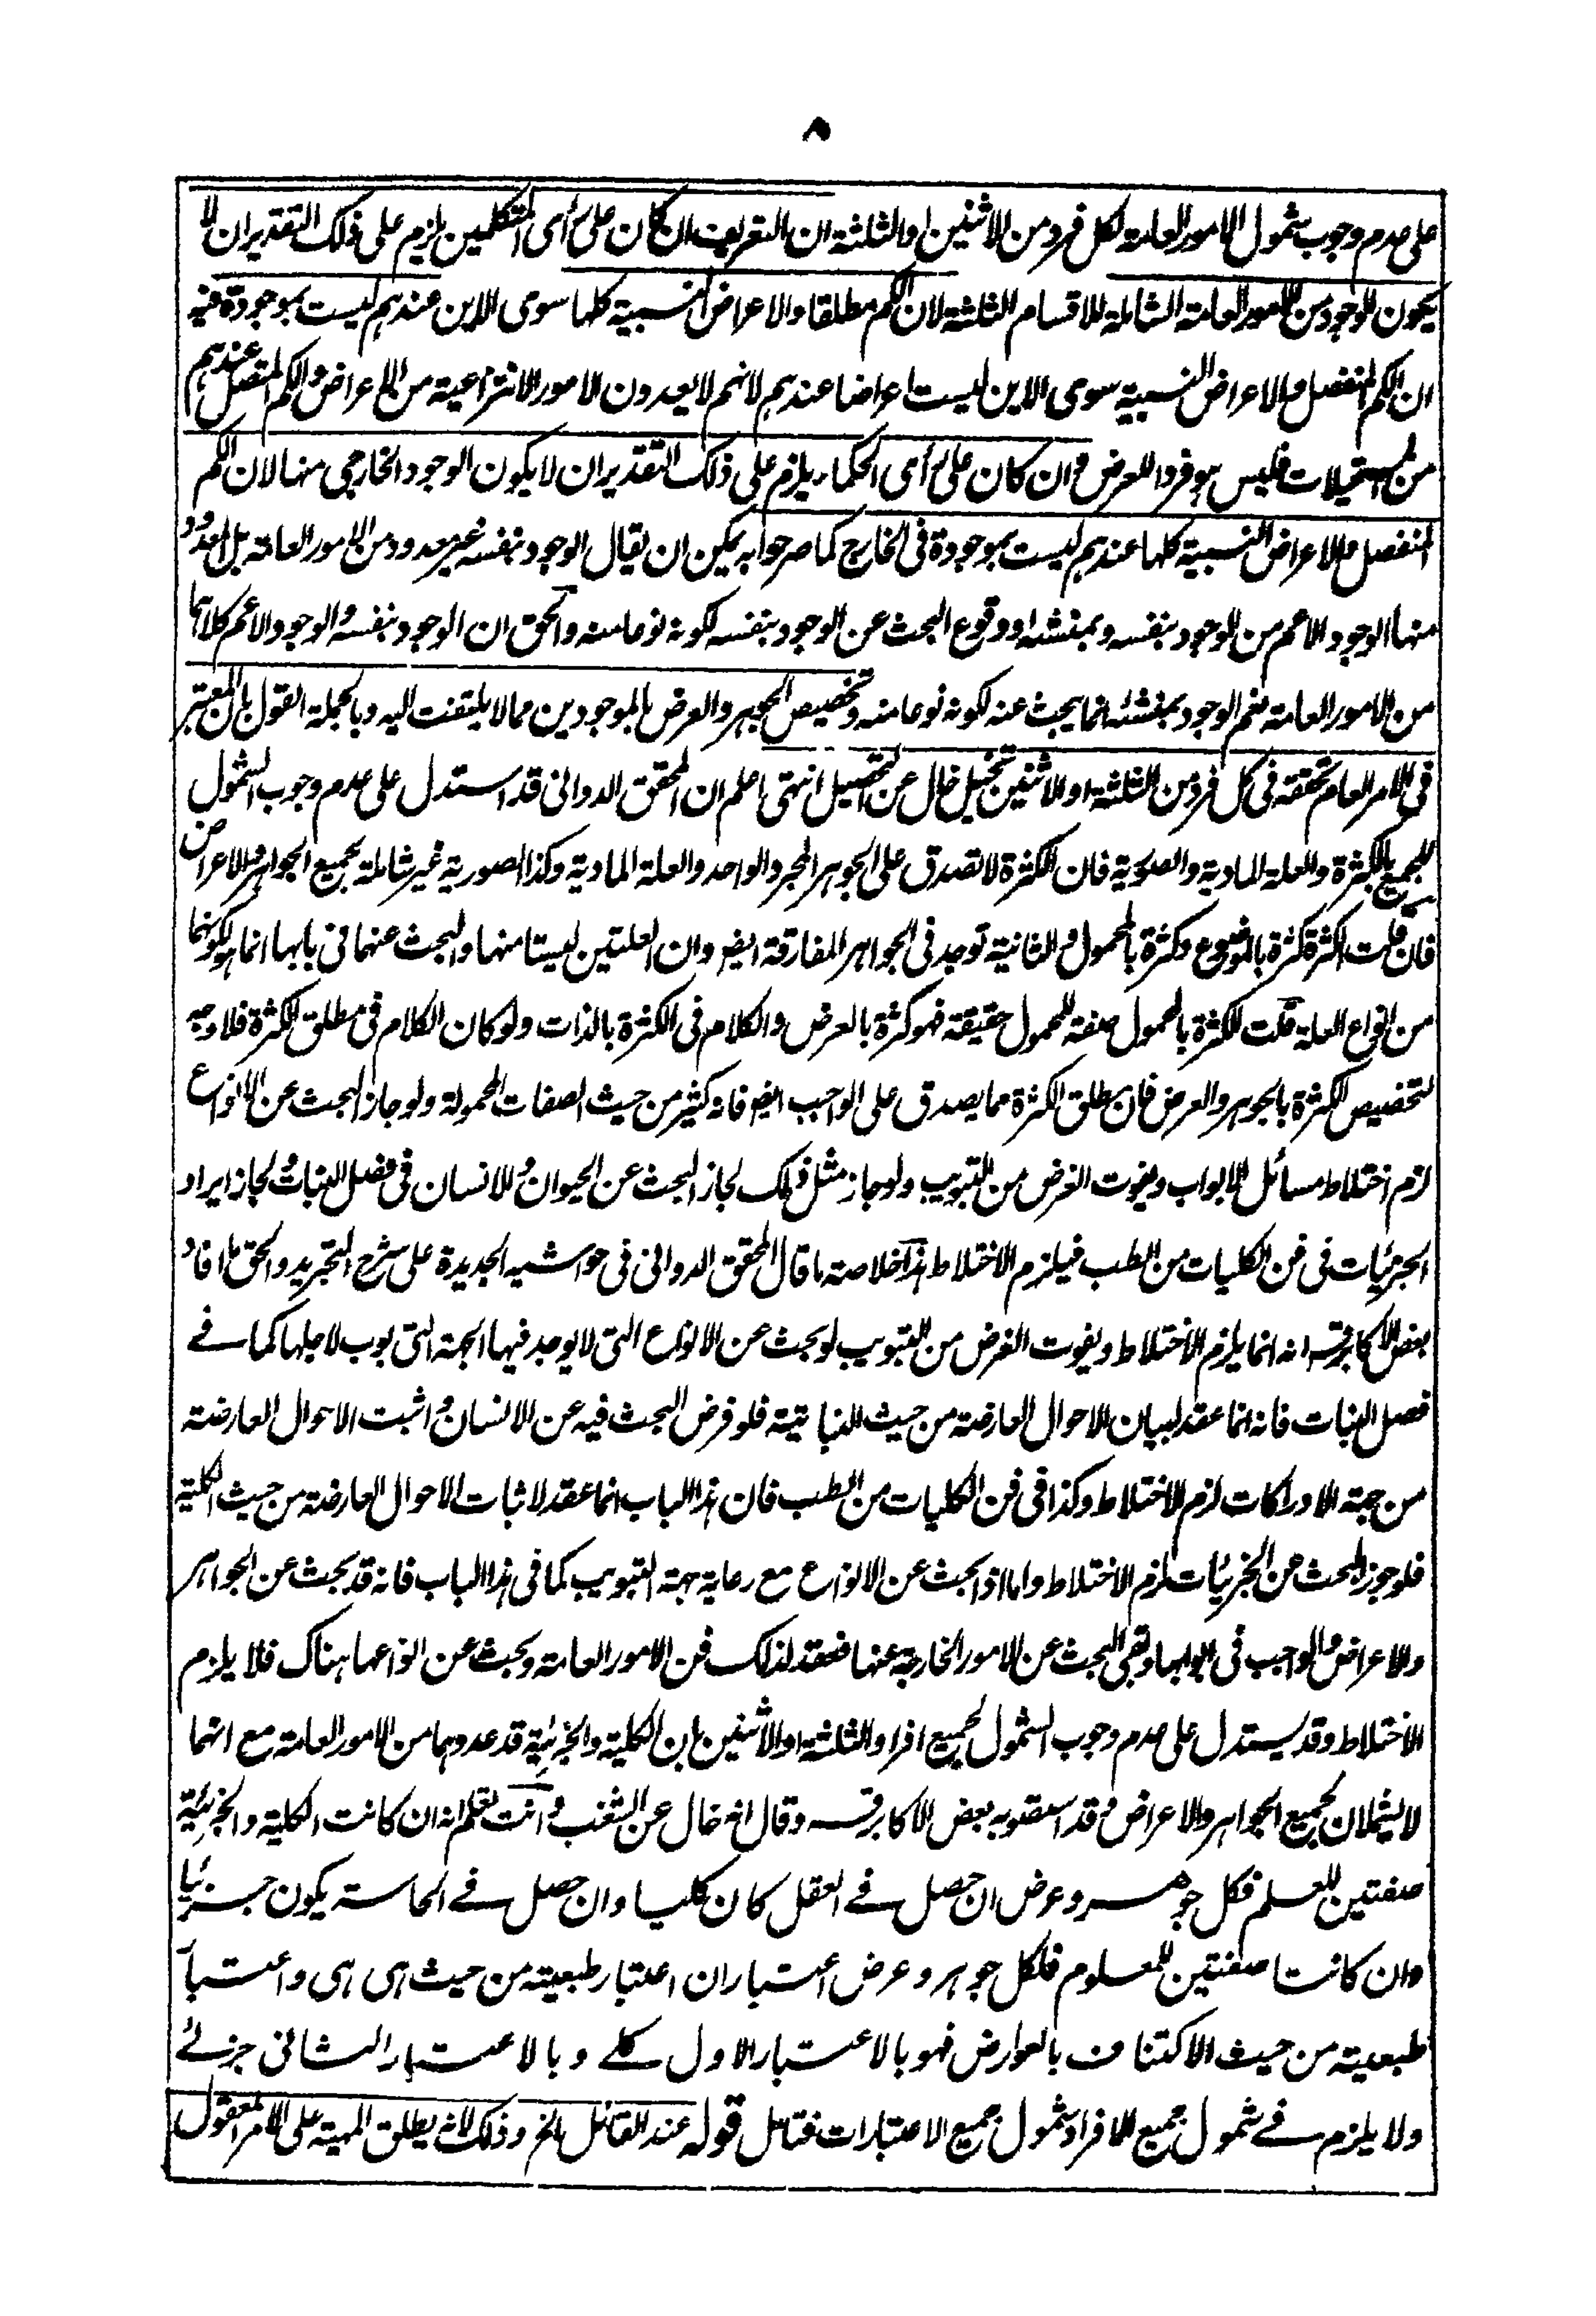 ٨
على عدم وجوب شمول الامور العامة لكل فرد من الاثنين او الثلثة ان التعريف ان كان على رأى المتكلمين يلزم على ذلك التقدير ان لا
يكون الوجود من الامور العامة الشاملة للاقسام الثلثة لان الكم مطلقا والاعراض النسبية كلها سوى الاين عندهم ليست بموجودة فيه
ان الكم المنفصل والاعراض النسبية سوى الاين ليست اعراضا عندهم لانهم لا يعدون الامور الانتزاعية من الاعراض والكم المتصل عندهم
من المستحيلات فليس هو فردا للعرض وان كان على رأى الحكماء يلزم على ذلك التقدير ان لا يكون الوجود الخارجى منها لان الكم
المنفصل والاعراض النسبية كلها عندهم ليست بموجودة فى الخارج كما صرحوا به يمكن ان يقال الوجود بنفسه غير معدود من الامور العامة بل المعدود
منها الوجود الاعم من الوجود بنفسه وبمنشئه او وقوع البحث عن الوجود بنفسه لكونه نوعا منه والحق ان الوجود بنفسه والوجود الاعم كلاهما
من الامور العامة نعم الوجود بمنشئه انما يبحث عنه لكونه نوعا منه وتخصيص الجوهر والعرض بالموجودين مما لا يلتفت اليه وبالجملة القول بان المعتبر
فى الامر العام تحققه فى كل فرد من الثلثة او الاثنين تخييل خال عن التحصيل انتهى اعلم ان المحقق الدوانى قد استدل على عدم وجوب الشمول
للجميع بالكثرة والعلة المادية والصورية فان الكثرة لا تصدق على الجوهر المجرد الواحد والعلة المادية وكذا الصورية غير شاملة لجميع الجواهر والاعراض
فان قلت الكثرة كثرة بالموضوع وكثرة بالمحمول والثانية توجد فى الجواهر المفارقة ايضا وان العلتين ليستا منها والبحث عنهما فى بابها انما هو لكونهما
من انواع العلة قلت الكثرة بالمحمول صفة للمحمول حقيقة فهو كثرة بالعرض والكلام فى الكثرة بالذات ولو كان الكلام فى مطلق الكثرة فلا وجه
لتخصيص الكثرة بالجوهر والعرض فان مطلق الكثرة مما يصدق على الواجب ايضا فانه كثير من حيث الصفات المحمولة ولو جاز البحث عن الانواع
لزم اختلاط مسائل الابواب ويفوت الغرض من التبويب ولو جاز مثل ذلك لجاز البحث عن الحيوان والانسان فى فصل النبات ولجاز ايراد
الجزئيات فى فن الكليات من الطب فيلزم الاختلاط هذا خلاصة ما قال المحقق الدوانى فى حواشيه الجديدة على شرح التجريد والحق ما افاد
بعض الاكابر قسه انه انما يلزم الاختلاط ويفوت الغرض من التبويب لو بحث عن الانواع التى لا يوجد فيها الجهة التى بوب لاجلها كما فے
فصل النبات فانه انما عقد لبيان الاحوال العارضة من حيث النباتية فلو فرض البحث فيه عن الانسان واثبت الاحوال العارضة
من جهة الادراكات لزم الاختلاط وكذا فى فن الكليات من الطب فان هذا الباب انما عقد لاثبات الاحوال العارضة من حيث الكلية
فلو جوز البحث عن الجزئيات لزم الاختلاط واما اذا بحث عن الانواع مع رعاية جهة التبويب كما فى هذا الباب فانه قد بحث عن الجواهر
والاعراض والواجب فى ابوابها وبقى البحث عن الامور الخارجة عنها فعقد لذلك فن الامور العامة وبحث عن انواعها هناك فلا يلزم
الاختلاط وقد يستدل على عدم وجوب الشمول لجميع افراد الثلثة او الاثنين بان الكلية والجزئية قد عدوهما من الامور العامة مع انهما
لا يشملان لجميع الجواهر والاعراض وقد استصوبه بعض الاكابر قسه وقال انه خال عن الشغب وانت تعلم انه ان كانت الكلية والجزئية
صفتين للعلم فكل جوهر وعرض ان حصل فے العقل كان كليا وان حصل فے الحاسة يكون جزئيا
وان كانتا صفتين للمعلوم فلكل جوهر وعرض اعتباران اعتبار طبعيته من حيث هى هى واعتبار
طبعيته من حيث الاكتناف بالعوارض فهو بالاعتبار الاول كلے وبالاعتبار الثانى جزئے
ولا يلزم فے شمول جميع الافراد شمول جميع الاعتبارات فتامل قوله عند القائل الخ وذلك لانه يطلق المهية على الامر المعقول